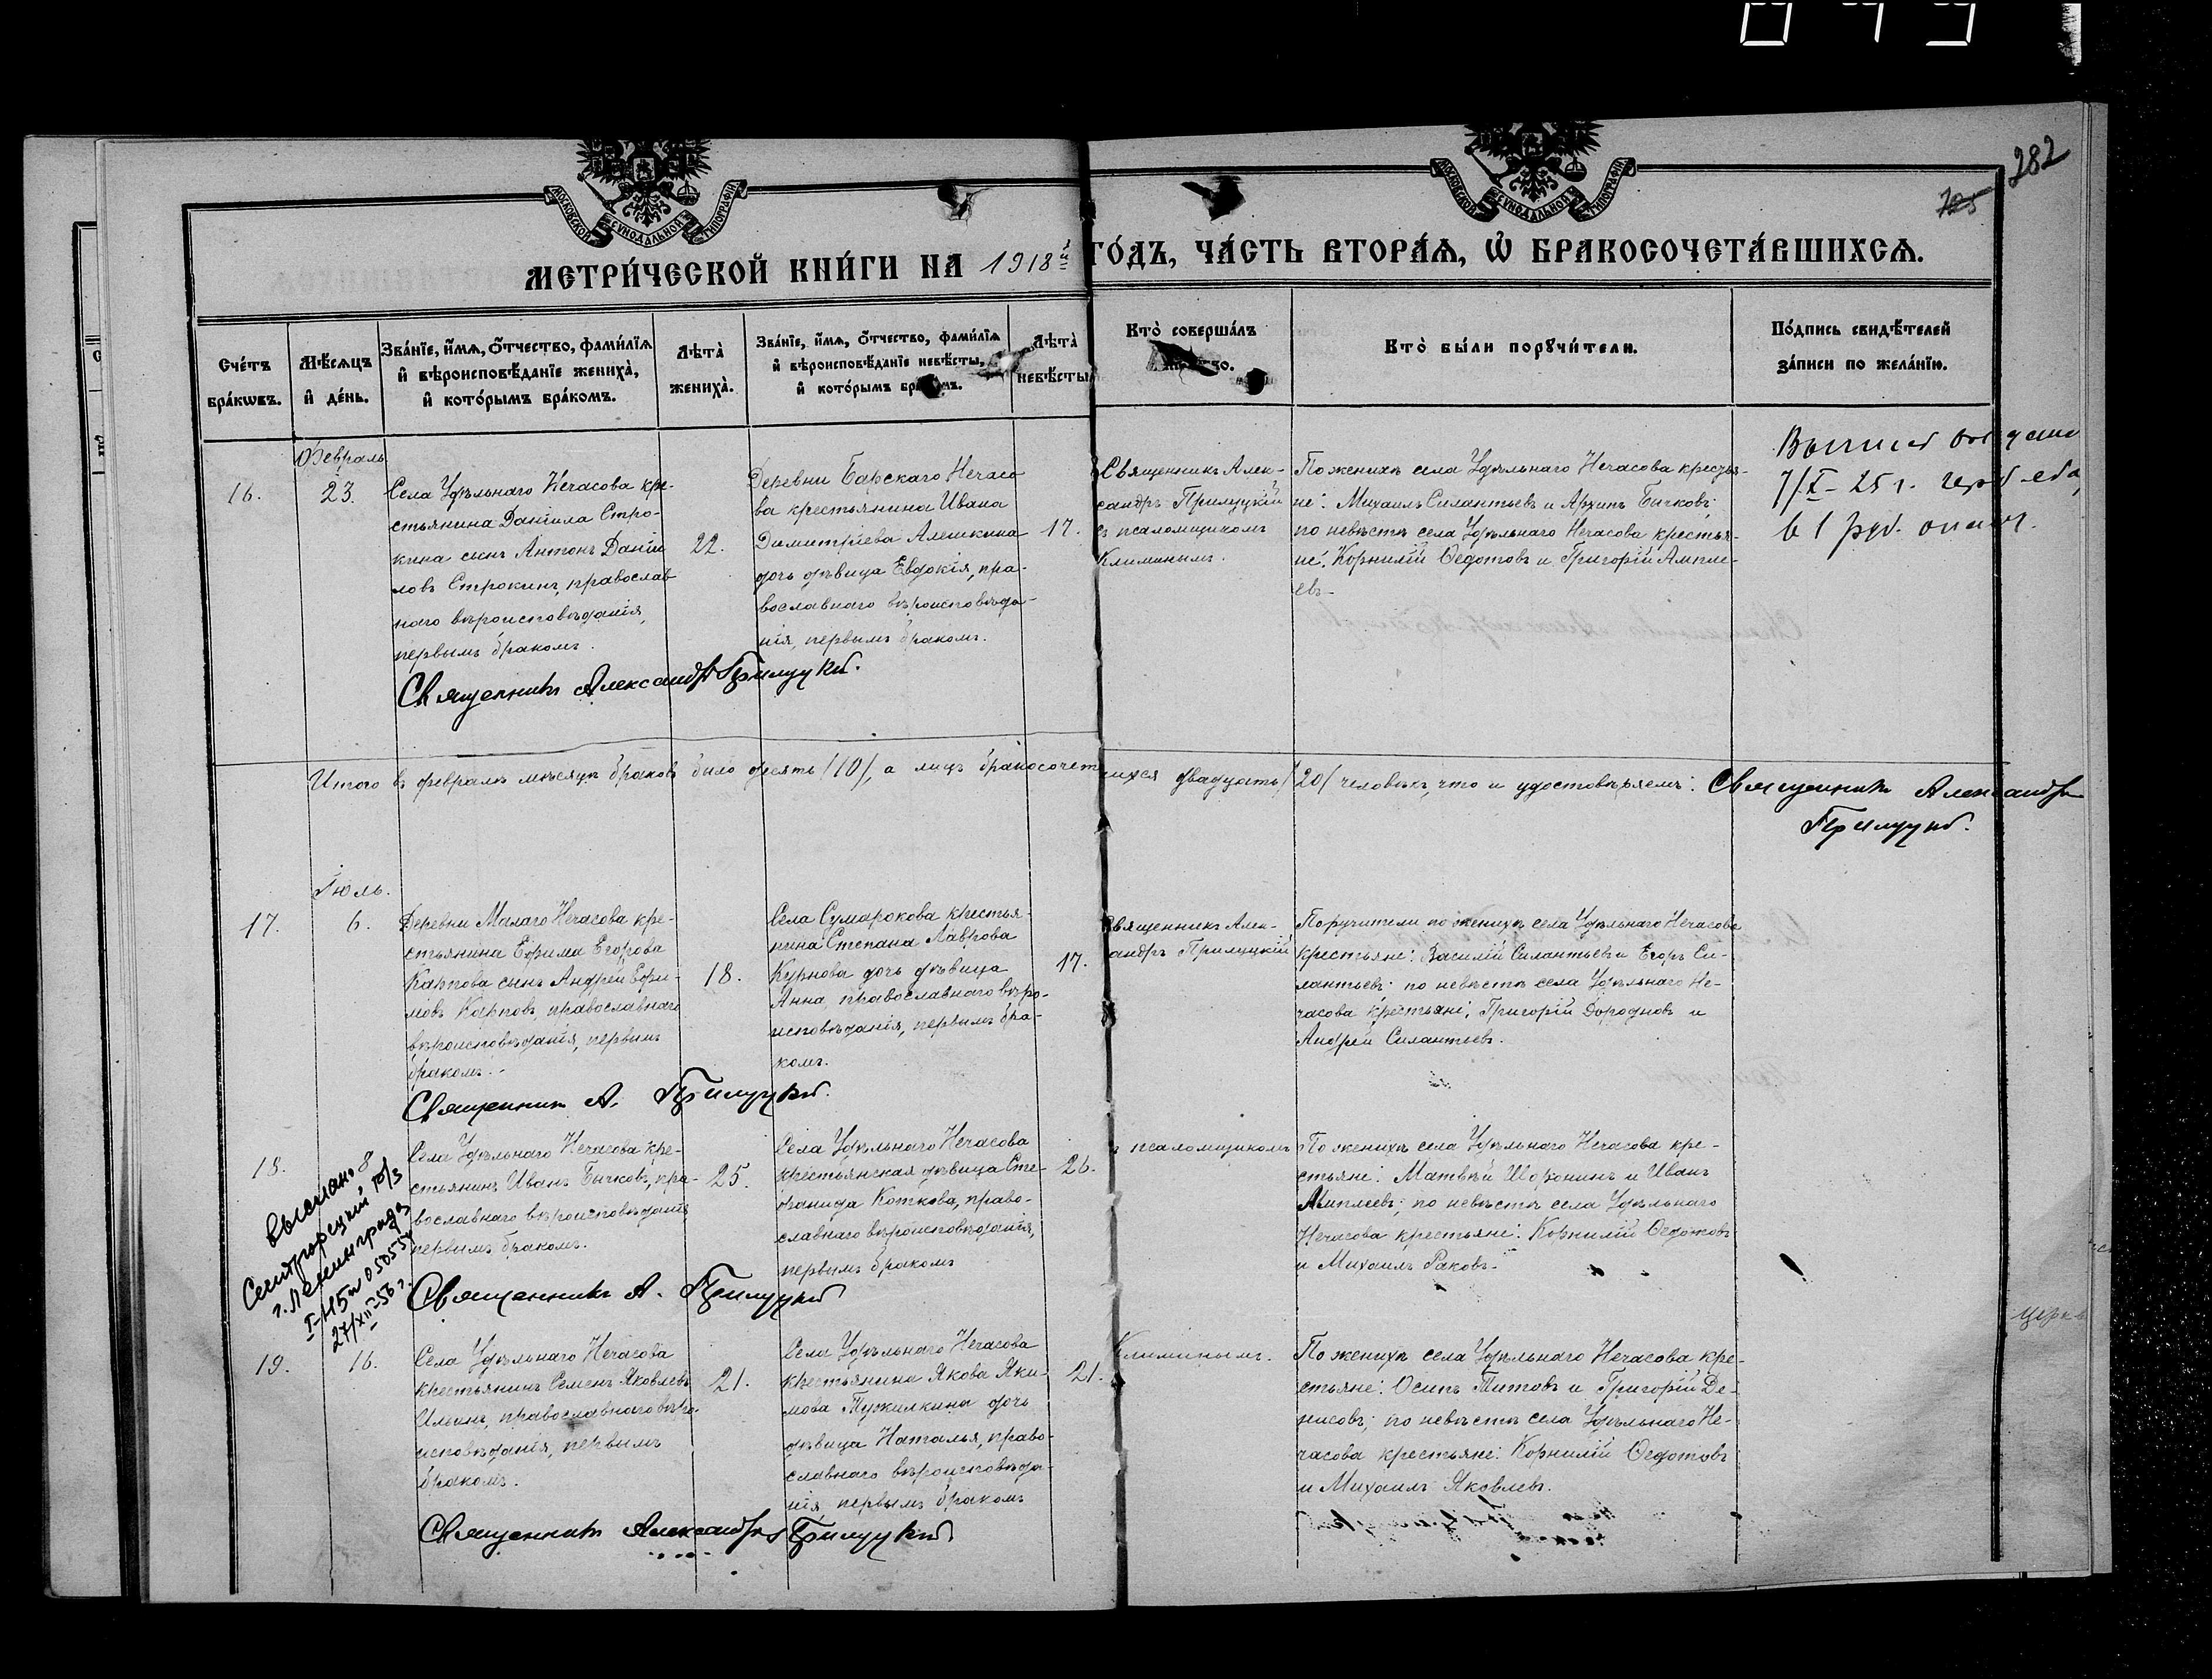 282
725
МОСКОВСКОЙ СѴНОДАЛЬНОЙ ТИПОГРАФІИ
МОСКОВСКОЙ СѴНОДАЛЬНОЙ ТИПОГРАФІИ
МЕТРИ́ЧЕСКОЙ КНИ́ГИ НА 1918й ГО́ДЪ, ЧА́СТЬ ВТОРА́Ѧ, Ѡ҆ БРАКОСОЧЕТА́ВШИХСѦ.
Сче́тъ
бра́кѡвъ.
Мѣ́сѧцъ
и҆ де́нь.
Зва́нїе, и҆́мѧ, ѻ҆́тчество, фами́лїѧ
и҆ вѣроисповѣ́данїе жениха̀,
и҆ кото́рымъ бра́комъ.
Лѣта̀
жениха̀.
Зва́нїе, и҆́мѧ, ѻ҆́тчество, фами́лїѧ
и҆ вѣроисповѣ́данїе невѣ́сты,
и҆ кото́рымъ бра́комъ.
Лѣта̀
невѣ́сты
Кто̀ соверша́лъ
Кто̀ бы́ли порꙋчи́тели.
По́дпись свидѣ́телей
за́писи по жела́нїю.
16.
Февраль
23.
Села Удѣльнаго Нечасова кре-
стьянина Даніила Стро-
кина сынъ Антонъ Даніи
ловъ Строкинъ, православ
наго вѣроисповѣданія,
первымъ бракомъ.
22.
Деревни Барскаго Нечасо
ва крестьянина Ивана
Димитріева Алешкина
дочь дѣвица Евдокія, пра-
вославнаго вѣроисповѣда-
нія, первымъ бракомъ.
17.
Священникъ Алек-
сандръ Прилуцкій
съ псаломщикомъ
Климинымъ.
По женихѣ села Удѣльнаго Нечасова крестья-
не: Михаилъ Силантьевъ и Архипъ Бычковъ;
по невѣстѣ села Удѣльнаго Нечасова крестья-
не: Корнилій Ѳедотовъ и Григорій Ампле-
евъ
7/X-25 г.
в 1 руб.
Священникъ Александръ Прилуцкій.
Итого въ февралѣ мѣсяцѣ браковъ было десять /10/, а лицъ бракосочет шихся двадцать /20/ человѣкъ, что и удостовѣряемъ: Священникъ Александръ
Прилуцкій.
17.
Іюль.
6.
Деревни Малаго Нечасова кре-
стьянина Ефима Егорова
Карпова сынъ Андрей Ефи-
мовъ Карповъ, православнаго
вѣроисповѣданія, первымъ
бракомъ.
18.
Села Сумарокова крестья-
нина Степана Лаврова
Курнова дочь дѣвица
Анна, православнаго вѣро-
исповѣданія, первымъ бра-
комъ.
17.
Священникъ Алек-
сандръ Прилуцкій
Поручители по женихѣ села Удѣльнаго Нечасова
крестьяне: Василій Силантьевъ и Егоръ Си-
лантьевъ; по невѣстѣ села Удѣльнаго Не-
часова крестьяне: Григорій Дородновъ и
Андрей Силантьевъ.
Священникъ А. Прилуцкій.
18.
8
Села Удѣльнаго Нечасова кре-
стьянинъ Иванъ Бычковъ, пра-
вославнаго вѣроисповѣданія
первымъ бракомъ.
25.
Села Удѣльнаго Нечасова
крестьянская дѣвица Сте-
фанида Коткова, право-
славнаго вѣроисповѣданія,
первымъ бракомъ
26.
съ псаломщикомъ
По женихѣ села Удѣльнаго Нечасова кре-
стьяне: Матвѣй Шоронинъ и Иванъ
Амплеевъ; по невѣстѣ села Удѣльнаго
Нечасова крестьяне: Корнилій Ѳедотовъ
и Михаилъ Раковъ.
Выслано
Сестрорецкий р/з
г. Ленинграда
27/XII-56 г.
Священникъ А. Прилуцкій
19.
16.
Села Удѣльнаго Нечасова
крестьянинъ Семенъ Яковлевъ
Ильинъ, православнаго вѣро-
исповѣданія, первымъ
бракомъ.
21.
Села Удѣльнаго Нечасова
крестьянина Якова Яки-
мова Тужилкина дочь
дѣвица Наталья, право-
славнаго вѣроисповѣда-
нія первымъ бракомъ
21.
Климинымъ.
По женихѣ села Удѣльнаго Нечасова кре-
стьяне: Осипъ Титовъ и Григорій Де-
нисовъ; по невѣстѣ села Удѣльнаго Не-
часова крестьяне: Корнилій Ѳедотовъ
и Михаилъ Яковлевъ.
Священникъ Александръ Прилуцкій